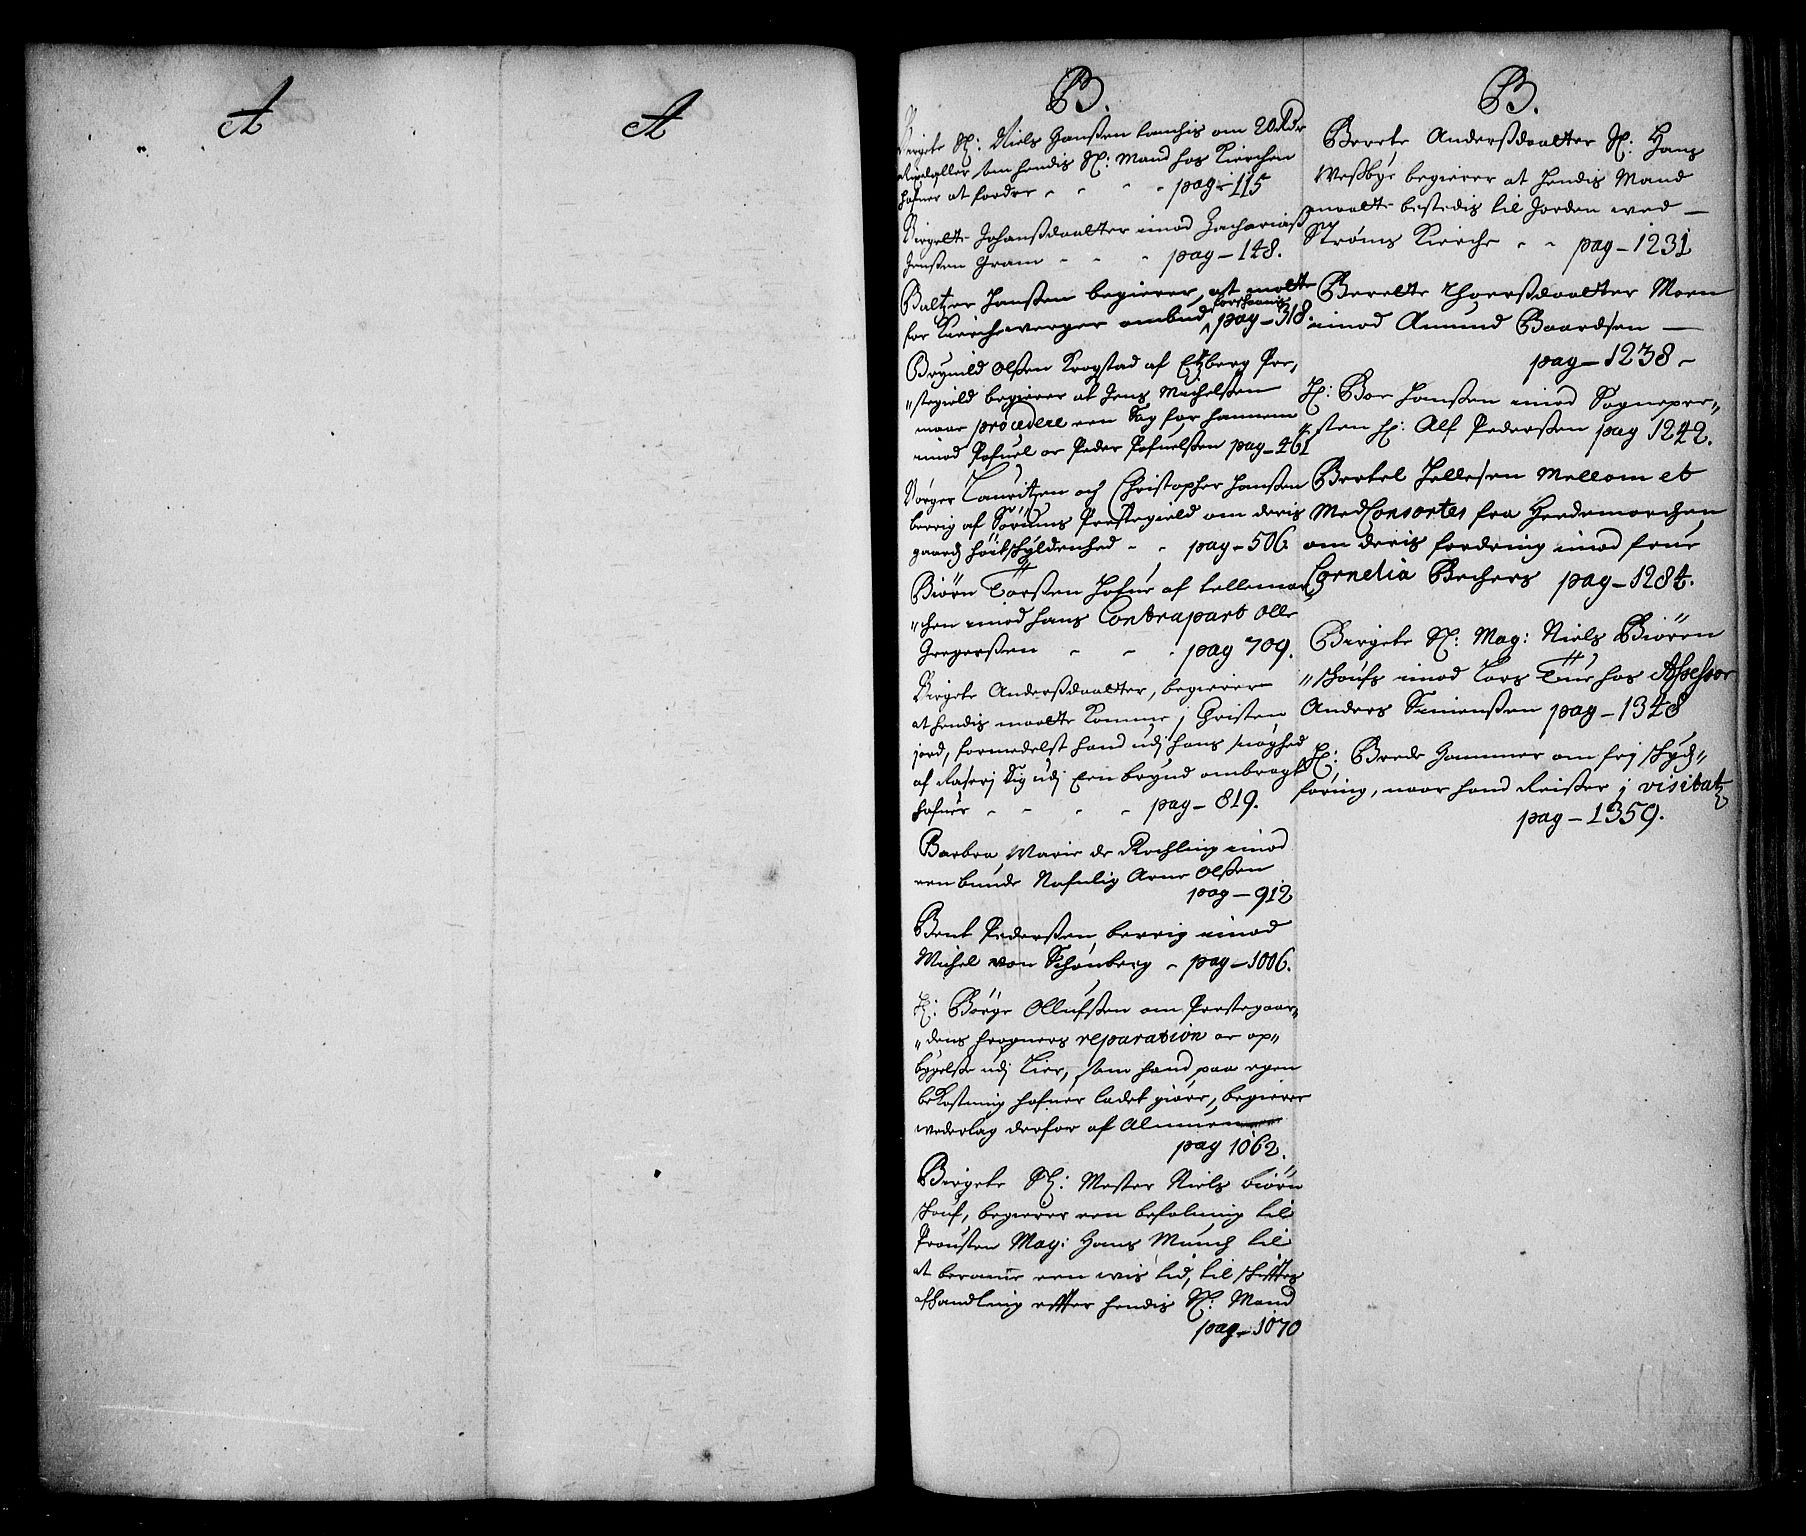 A
A
B.
Birgete Sl: Niels Hanßen Lamhis om 20 Rdr
Rixdaller som hendis Sl: Mand hos Kierchen
hafuer at fordre - - - - pag - 115
Birgelte Johanßdaatter imod Zacharias
Jenßen Gram - - - pag - 148.
Baltzer Hanßen begierer, at motte
for Kirchewerger ombud forschaanis pag - 318.
Brynild Olßen Krogstad af Etzberg Pre,
"stegield begierer at Jens Michelßen
maa procedere een Sag for hannem
imod Pofuel oc Peder Pofuelßen pag - 461
Børger Lauritzen och Christopher Hanßen
berrig af Sørums Prestegield om deris
gaards høie schyldenhed - - pag - 506.
Biørn Torßen Hofue af Tellemar,
"chen imod hans Contrapart Olle
Gregerßen - - - pag 709.
Birgete Anderßdaatter, begierer
at hendis maatte Komme j Christen
jord, formedelst hand udj hans suaghed
af Raserj Sig udj Een brynd ombragt
hafuer - - - - pag - 819.
Barbra Marie de Rochling imod
een bunde Nafnlig Arne Olßen
pag - 912
Bent Pederßen berrig imod
Michel von Schönberg - pag - 1006.
H: Børge Ollufßen om Prestegaar,,
"dens hrogners reparation oc op,,
byggelse udj Lier, som hand paa egen
bekostning hafuer ladet giøre, begierer
wederlag derfor af Almuen
pag 1062.
Birgete Sl: Mester Niels Biørn
skouf, begierer een befaling til
Prousten Mag: Hans Munch til
at berame een wis tid, til skifftes
afhandling effter hendis Sl: Mand
pag - 1070
B.
Berete Anderßdaatter Sl: Hans
Weßbye begierer at hendis Mand
maatte bestedis til Jorden wed -
Strøms Kierche - - pag - 1231
Berelte Thorßdaatter Moen
imod Amund Baardsen -
pag - 1238 -
H: Bor Hanßen imod Sognepre,,
sten H: Alf Pederßen pag 1242.
Bertel Hellesen Mellom et
MedConsortes fra Hedemarchen
om deris fordring imod frue
Cornelia Bechers pag - 1284.
Birgete Sl: Mag: Niels Biørn
"skoufs imod Lars Tue hos Assessor
Anders Simenßen pag - 1348
H: Brede Hammer om frj skyds,,
føring, naar hand Reißer j visitatz
pag - 1359.